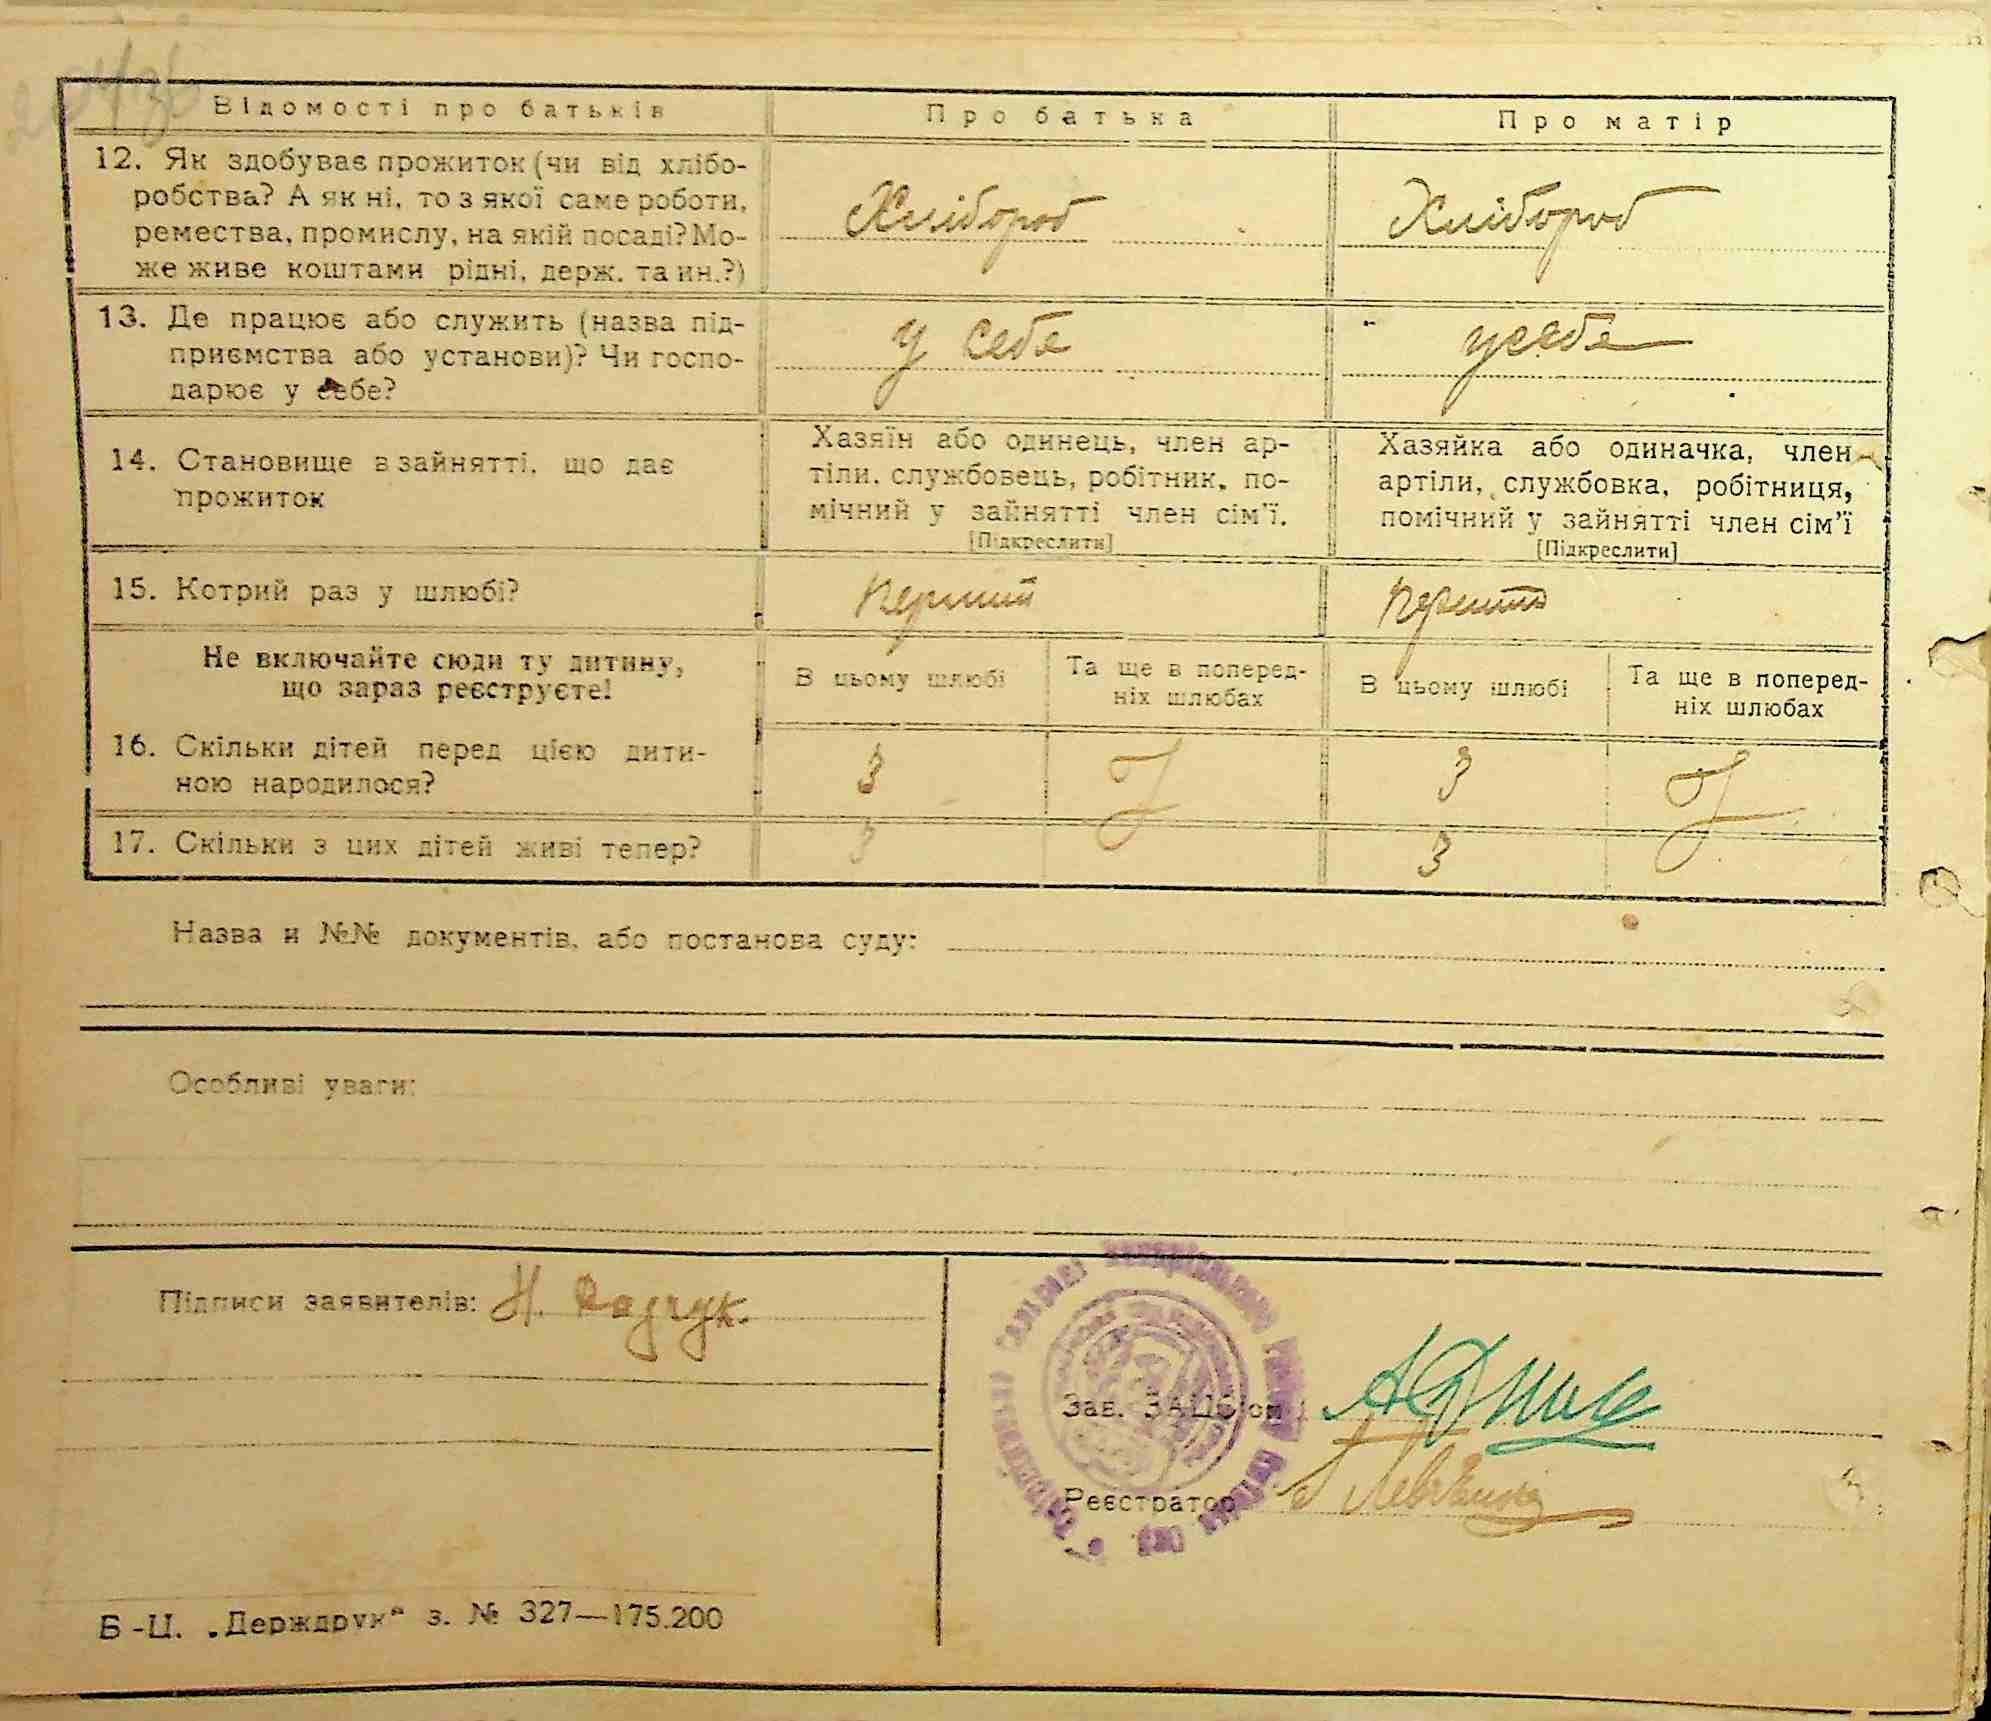 Відомості про батьків
Про батька
Про матір
12. Як здобуває прожиток (чи від хлібо-
робства? А як ні, то з якої саме роботи,
ремества, промислу, на якій посаді? Мо-
же живе коштами рідні, держ. та ин.?)
Хлібороб
Хлібороб
13. Де працює або служить (назва під-
приємства або установи)? Чи госпо-
дарює у себе?
у себе
у себе
14. Становище в зайнятті, що дає
прожиток
Хазяїн або одинець, член ар-
тіли, службовець, робітник, по-
мічний у зайнятті член сім'ї.
[Підкреслити]
Хазяйка або одиначка, член
артіли, службовка, робітниця,
помічний у зайнятті член сім'ї
[Підкреслити]
15. Котрий раз у шлюбі?
Перший
Не включайте сюди ту дитину,
що зараз реєструєте!
В цьому шлюбі
Та ще в поперед-
ніх шлюбах
В цьому шлюбі
Та ще в поперед-
ніх шлюбах
16. Скільки дітей перед цією дити-
ною народилося?
3
3
17. Скільки з цих дітей живі тепер?
3
3
Назва и №№ документів, або постанова суду:
Особливі уваги:
Підписи заявителів: Н.
Зав. ЗАЦС'ом
Реєстратор
Б-Ц. „Держдрук“ з. № 327—175.200